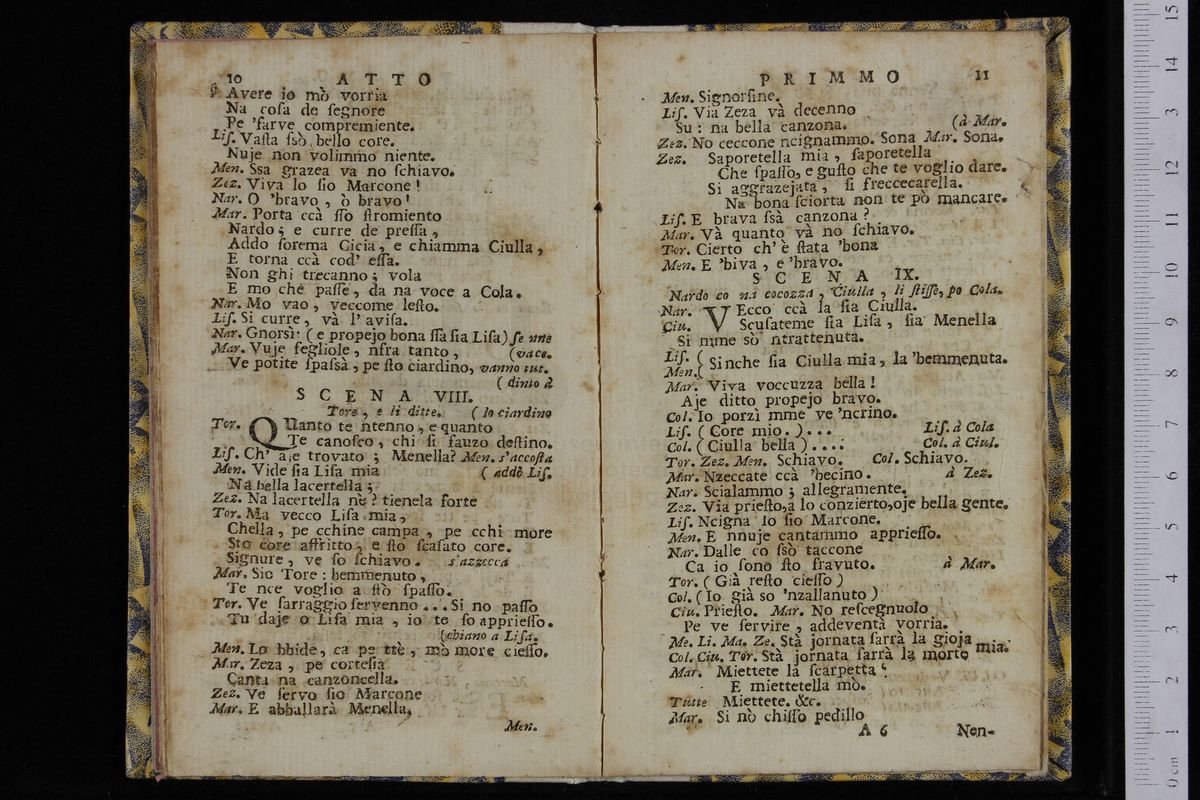 10 ATTO
Avere io mò vorria
Na cosa de segnore
Pe 'farve compremiente.
Lis. Vasta ssò bello core.
Nuje non volimmo niente.
Men. Ssa grazea va no schiavo.
Zez. Viva lo sio Marcone!
Nar. O 'bravo, ò bravo!
Mar. Porta ccà sso stromiento
Nardo; e curre de pressa,
Addo sorema Cicia, e chiamma Ciulla,
E torna ccà cod' essa.
Non ghi trecanno; vola
E mo che passe, da na voce a Cola.
Nar. Mo vao, veccome lesto.
Lis. Si curre, và l' avisa.
Nar. Gnorsì: (e propejo bona ssa sia Lisa) se nne
Mar. Vuje fegliole, nfra tanto, (vace.
Ve potite spassà, pe sto ciardino, vanno tut.
(dinto à
SCENA VIII.
Tore, e li ditte. (lo ciardino
Tor. QUanto te ntenno, e quanto
Te canosco, chi si fauzo destino.
Lis. Ch' aje trovato; Menella? Men. s'accosta
Men. Vide sia Lisa mia (addò Lis.
Na bella lacertella;
Zez. Na lacertella nè? tienela forte
Tor. Ma vecco Lisa mia,
Chella, pe cchine campa, pe cchi more
Sto core affritto, e sto scasato core.
Signure, ve so schiavo. s'azzecca
Mar. Sio Tore: bemmenuto,
Te nce voglio a stò spasso.
Tor. Ve sarraggio servenno... Si no passo
Tu daje o Lisa mia, io te so appriesso.
(chiano a Lisa.
Men. Lo bbide, ca pe ttè, mò more ciesso.
Mar. Zeza, pe cortesia
Canta na canzoncella.
Zez. Ve servo sio Marcone
Mar. E abballarà Menella.
Men.
PRIMMO 11
Men. Signorsine.
Lis. Via Zeza và decenno
Su: na bella canzona. (à Mar.
Zez. No ceccone ncignammo. Sona Mar. Sona.
Zez. Saporetella mia, saporetella
Che spasso, e gusto che te voglio dare.
Si aggrazejata, si freccecarella.
Na bona sciorta non te pò mancare.
Lis. E brava ssà canzona?
Mar. Và quanto và no schiavo.
Tor. Cierto ch' è stata 'bona
Men. E 'biva, e 'bravo.
SCENA IX.
Nardo co na cocozza, Ciulla, li stisse, po Cola.
Nar. VEcco ccà la sia Ciulla.
Ciu. Scusateme sia Lisa, sia Menella
Si mme sò ntrattenuta.
Lis. (
Men. ( Sinche sia Ciulla mia, la 'bemmenuta.
Mar. Viva voccuzza bella!
Aje ditto propejo bravo.
Col. Io porzì mme ve 'ncrino.
Lis. (Core mio.)... Lis. à Cola
Col. (Ciulla bella).... Col. à Ciul.
Tor. Zez. Men. Schiavo. Col. Schiavo.
Mar. Nzeccate ccà 'becino. à Zez.
Nar. Scialammo; allegramente.
Zez. Via priesto, a lo conzierto, oje bella gente.
Lis. Ncigna lo sio Marcone.
Men. E nnuje cantammo appriesso.
Nar. Dalle co ssò taccone
Ca io sono sto fravuto. à Mar.
Tor. (Già resto ciesso)
Col. (Io già so 'nzallanuto)
Ciu. Priesto. Mar. No rescegnuolo
Pe ve servire, addeventà vorria.
Me. Li. Ma. Ze. Stà jornata sarrà la gioja mia.
Col. Ciu. Tor. Stà jornata sarrà la morte
Mar. Miettete la scarpetta
E miettetella mò.
Tutte Miettete. &c.
Mar. Si nò chisso pedillo
A 6 Non-